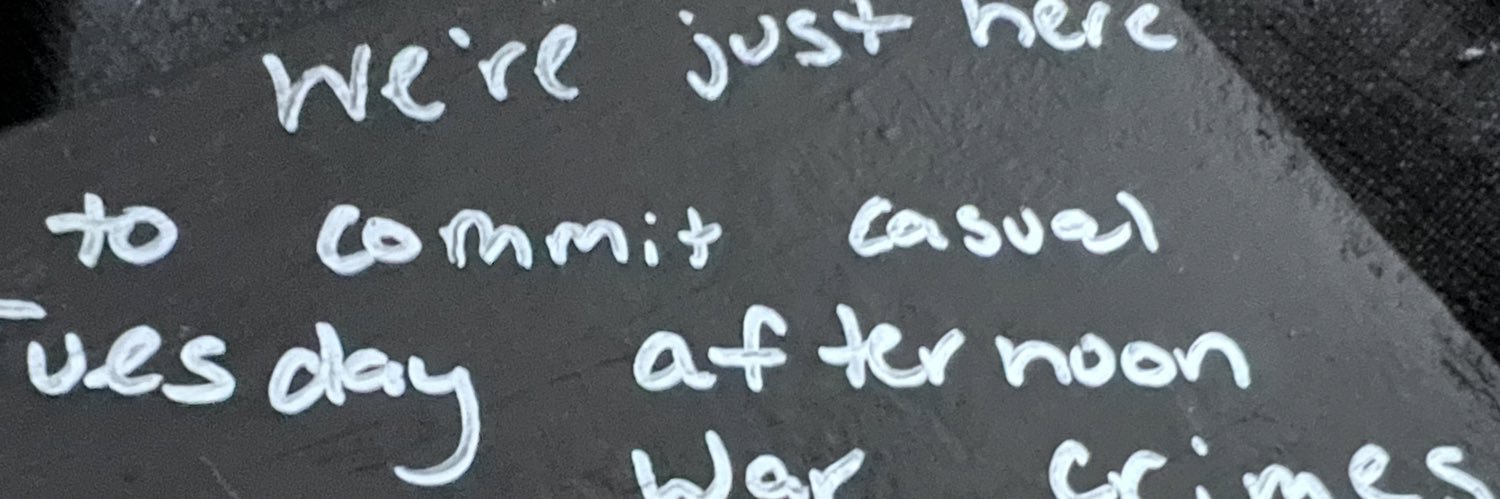 We're just here
to commit casual
Tuesday afternoon
war crimes